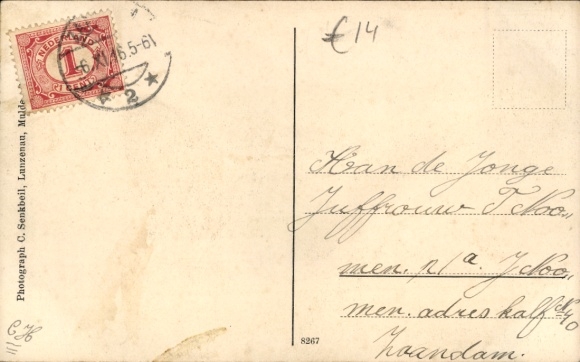 €14
NEDERLAND
1
CENT
6 XI 16.5-6
2
Photograph C. Senkbeil, Lunzenau, Mulde
Aan de Jonge
Juffrouw T Noo„
men. p/a. J Noo„
men. adres kalf
Zaandam.
CH
8267